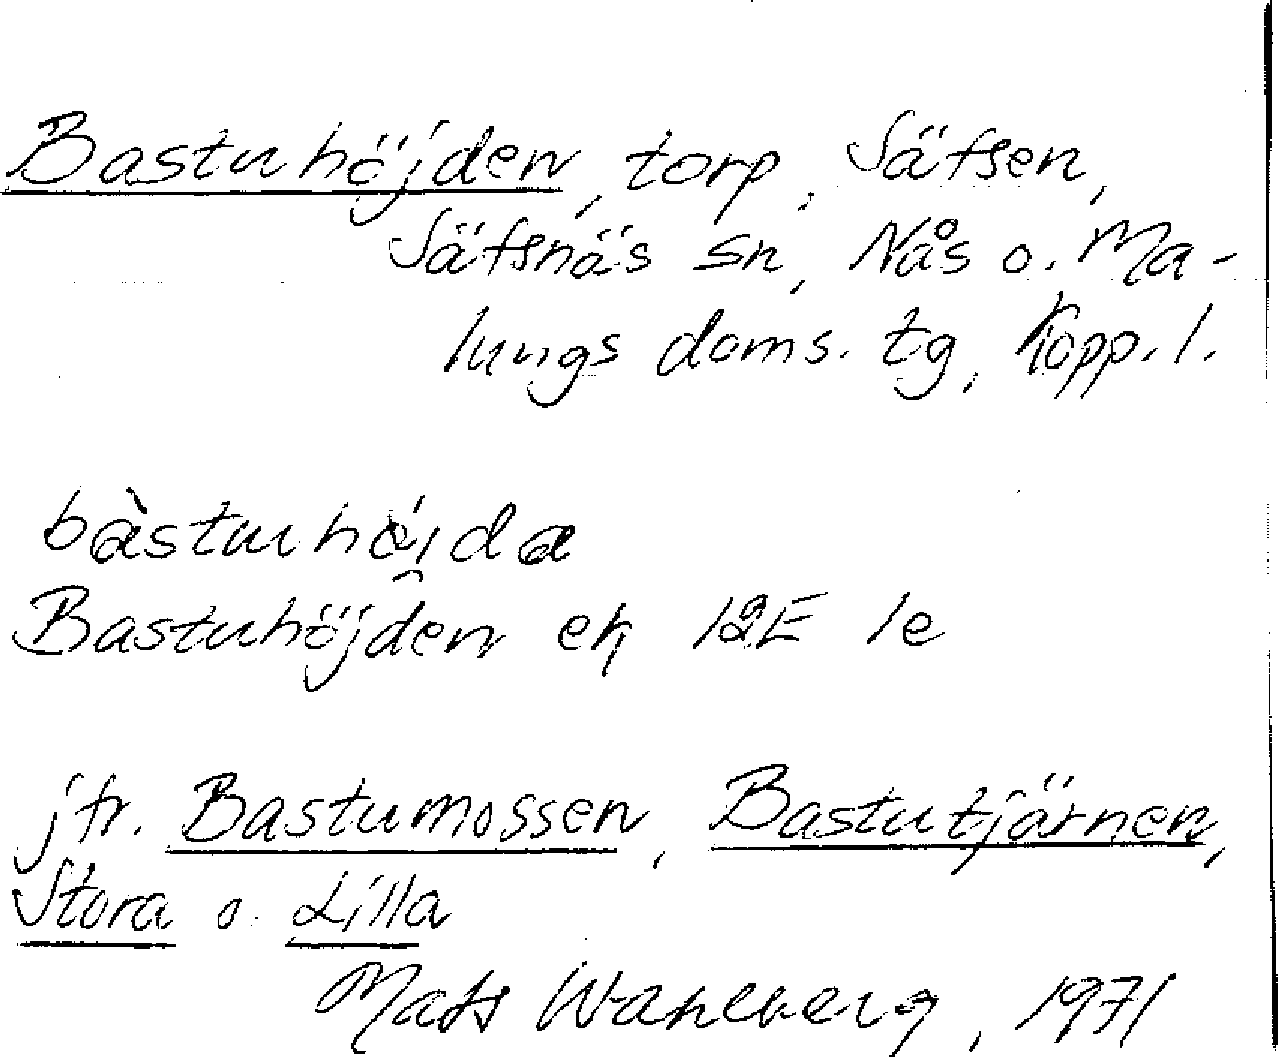 Bastuhöjden, torp, Säfsen,
Säfsnäs sn, Nås o. Ma-
lungs doms. tg, Kopp. l.
Bastuhöjden ek 12E 1e
jfr. Bastumossen, Bastutjärnen,
Stora o. Lilla
Mats Wahlberg, 1971